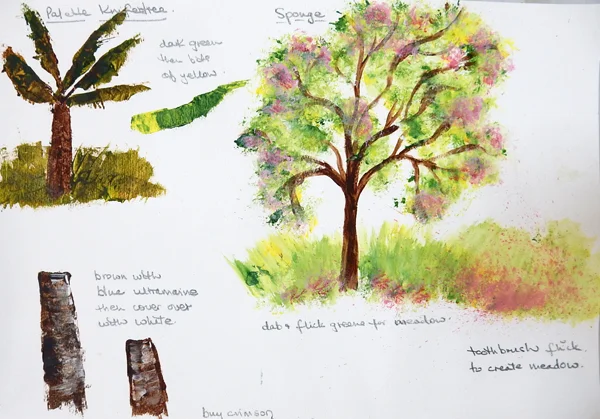 Palette Knife tree
Sponge
dark green
then bits
of yellow.
brown with
blue ultramarine
then cover over
with white.
dab & flick greens for meadow.
toothbrush flick
to create meadow.
buy crimson